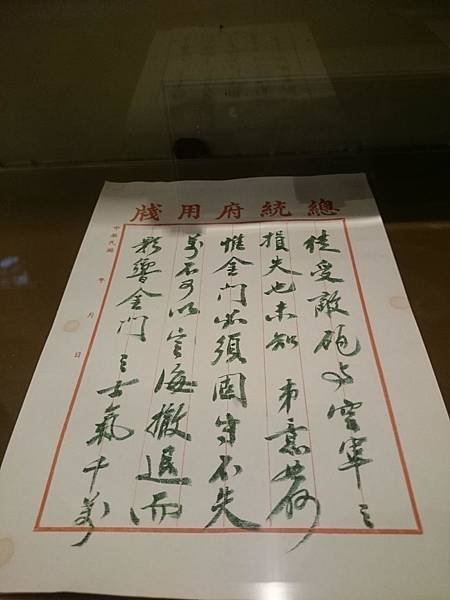 總統府用牋
徒受敵砲与空軍之
損失也未知 弟意如何
惟金門必須固守不失
萬不可以定海撤退而
影響金門之士氣千萬
中華民國 年 月 日